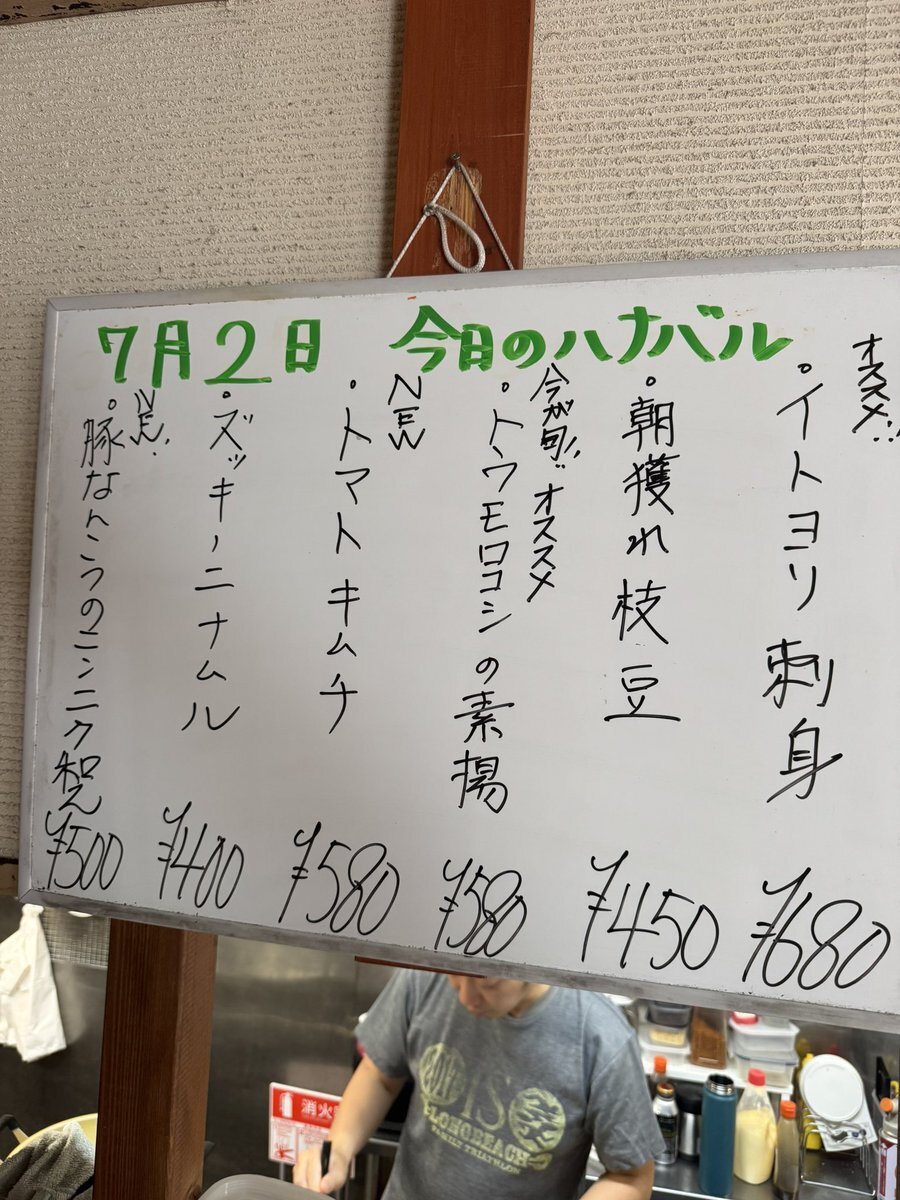 7月2日 今日のハナバル
オススメ!!
・イトヨリ刺身
¥680
・朝獲れ枝豆
¥450
今が旬!! オススメ
・トウモロコシの素揚
¥580
NEW
・トマトキムチ
¥580
・ズッキーニナムル
¥400
NEW!
・豚なんこつのニンニク和え
¥500
消火